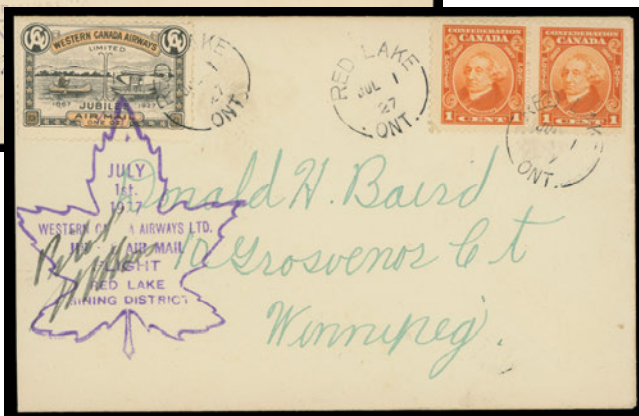 WESTERN CANADA AIRWAYS
LIMITED
1867 JUBILEE 1927
AIR MAIL
RED LAKE
JUL 1
27
ONT.
CONFEDERATION
CANADA
1 CENT 1
CONFEDERATION
CANADA
1 CENT 1
ONT.
JULY
1st.
WESTERN CANADA AIRWAYS LTD.
AIR MAIL
FLIGHT
RED LAKE
MINING DISTRICT
Donald H. Baird
10 Grosvenor Ct
Winnipeg.